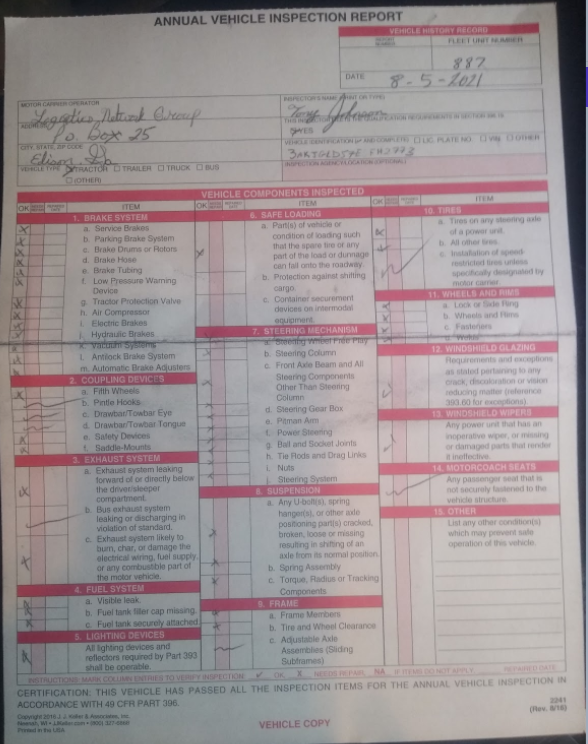 ANNUAL VEHICLE INSPECTION REPORT
VEHICLE HISTORY RECORD
REPORT NUMBER
FLEET UNIT NUMBER
887
DATE 8-5-2021
MOTOR CARRIER OPERATOR
Network Group
ADDRESS
P.o. Box 25
CITY, STATE, ZIP CODE
VEHICLE TYPE TRACTOR TRAILER TRUCK BUS
(OTHER)
INSPECTOR'S NAME (PRINT OR TYPE)
YES
VEHICLE IDENTIFICATION LIC. PLATE NO. VIN OTHER
INSPECTION AGENCY/LOCATION (OPTIONAL)
VEHICLE COMPONENTS INSPECTED
OK
ITEM
1. BRAKE SYSTEM
a. Service Brakes
b. Parking Brake System
c. Brake Drums or Rotors
d. Brake Hose
e. Brake Tubing
f. Low Pressure Warning
Device
g. Tractor Protection Valve
h. Air Compressor
i. Electric Brakes
j. Hydraulic Brakes
k. Vacuum Systems
l. Antilock Brake System
m. Automatic Brake Adjusters
2. COUPLING DEVICES
a. Fifth Wheels
b. Pintle Hooks
c. Drawbar/Towbar Eye
d. Drawbar/Towbar Tongue
e. Safety Devices
f. Saddle-Mounts
3. EXHAUST SYSTEM
a. Exhaust system leaking
forward of or directly below
the driver/sleeper
compartment.
b. Bus exhaust system
leaking or discharging in
violation of standard.
c. Exhaust system likely to
burn, char, or damage the
electrical wiring, fuel supply,
or any combustible part of
the motor vehicle.
4. FUEL SYSTEM
a. Visible leak.
b. Fuel tank filler cap missing.
c. Fuel tank securely attached.
5. LIGHTING DEVICES
All lighting devices and
reflectors required by Part 393
shall be operable.
OK
ITEM
6. SAFE LOADING
a. Part(s) of vehicle or
condition of loading such
that the spare tire or any
part of the load or dunnage
can fall onto the roadway.
b. Protection against shifting
cargo.
c. Container securement
devices on intermodal
equipment.
7. STEERING MECHANISM
a. Steering Wheel Free Play
b. Steering Column
c. Front Axle Beam and All
Steering Components
Other Than Steering
Column
d. Steering Gear Box
e. Pitman Arm
f. Power Steering
g. Ball and Socket Joints
h. Tie Rods and Drag Links
i. Nuts
j. Steering System
8. SUSPENSION
a. Any U-bolt(s), spring
hanger(s), or other axle
positioning part(s) cracked,
broken, loose or missing
resulting in shifting of an
axle from its normal position.
b. Spring Assembly
c. Torque, Radius or Tracking
Components
9. FRAME
a. Frame Members
b. Tire and Wheel Clearance
c. Adjustable Axle
Assemblies (Sliding
Subframes)
OK
ITEM
10. TIRES
a. Tires on any steering axle
of a power unit.
b. All other tires.
c. Installation of speed-
restricted tires unless
specifically designated by
motor carrier.
11. WHEELS AND RIMS
a. Lock or Side Ring
b. Wheels and Rims
c. Fasteners
d. Welds
12. WINDSHIELD GLAZING
Requirements and exceptions
as stated pertaining to any
crack, discoloration or vision
reducing matter (reference
393.60 for exceptions).
13. WINDSHIELD WIPERS
Any power unit that has an
inoperative wiper, or missing
or damaged parts that render
it ineffective.
14. MOTORCOACH SEATS
Any passenger seat that is
not securely fastened to the
vehicle structure.
15. OTHER
List any other condition(s)
which may prevent safe
operation of this vehicle.
INSTRUCTIONS: MARK COLUMN ENTRIES TO VERIFY INSPECTION: OK X NEEDS REPAIR NA IF ITEMS DO NOT APPLY REPAIRED DATE
CERTIFICATION: THIS VEHICLE HAS PASSED ALL THE INSPECTION ITEMS FOR THE ANNUAL VEHICLE INSPECTION IN
ACCORDANCE WITH 49 CFR PART 396.
Copyright 2016 J. J. Keller & Associates, Inc.
Neenah, WI • JJKeller.com • (800) 327-6868
Printed in the USA
VEHICLE COPY
2241
(Rev. 8/16)